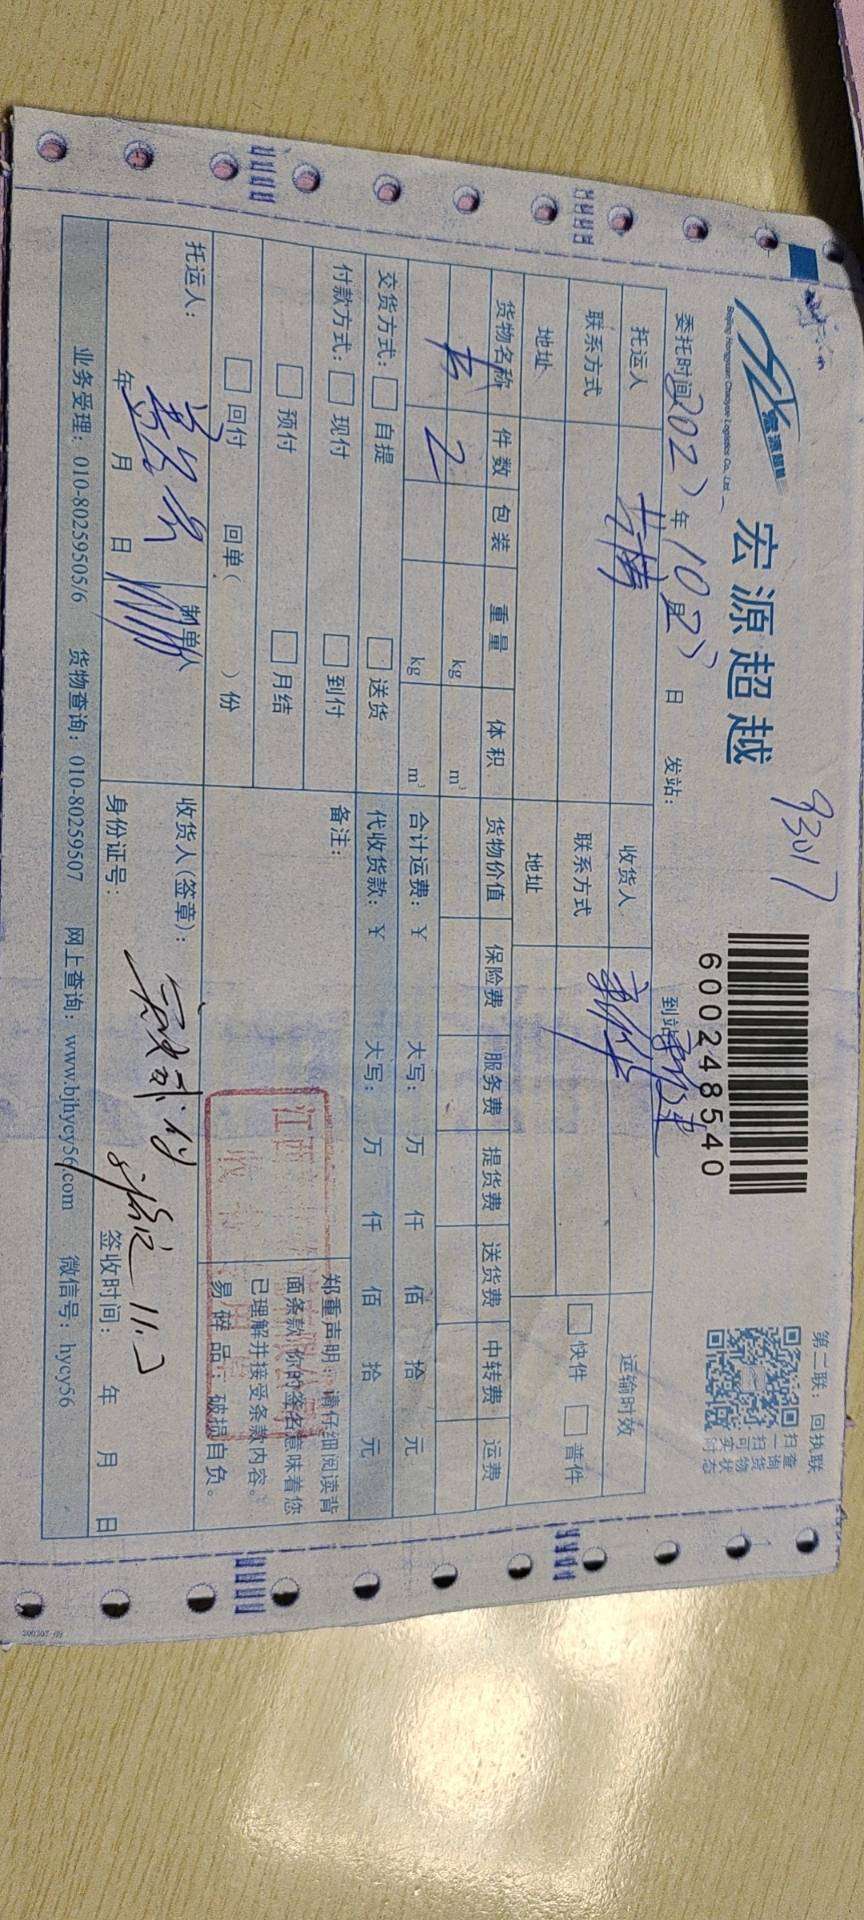 宏源超越
Beijing Hongyuan Chaoyue Logistics Co., Ltd
93017
600248540
第二联：回执联
扫一扫可实时
查询货物状态
委托时间 年10月 日 发站： 到站
托运人 收货人 运输时效
联系方式 联系方式 快件 普件
地址 地址
货物名称 件数 包装 重量 体积 货物价值 保险费 服务费 提货费 送货费 中转费 运费
书 2 kg m³
kg m³ 合计运费：¥ 大写： 万 仟 佰 拾 元
交货方式： 自提 送货 代收货款：¥ 大写： 万 仟 佰 拾 元
付款方式： 现付 到付 备注：
预付 月结
回付 回单（ ）份
郑重声明：请仔细阅读背
面条款，你的签名意味着您
已理解并接受条款内容。
易碎品：破损自负。
托运人： 制单人 收货人(签章)：
年 月 日 身份证号： 签收时间： 年 月 日
业务受理：010-80259505/6 货物查询：010-80259507 网上查询：www.bjhycy56.com 微信号：hycy56